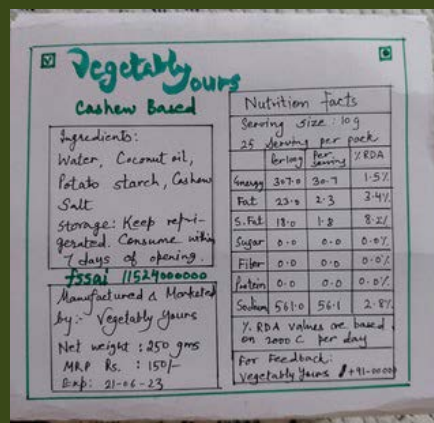 Vegetably
yours
Cashew Based
Ingredients:
Water, Coconut oil,
Potato starch, Cashew
Salt
Storage: Keep refri-
gerated. Consume within
7 days of opening.
fssai 11524000000
Manufactured & Marketed
by:- Vegetably Yours
Net weight : 250 gms
MRP Rs. : 150/-
Exp: 21-06-23
Nutrition Facts
Serving size : 10g
25 Serving per pack
Per 100g Per Serving % RDA
Energy 307.0 30.7 1.5%
Fat 23.0 2.3 3.4%
S.Fat 18.0 1.8 8.2%
Sugar 0.0 0.0 0.0%
Fiber 0.0 0.0 0.0%
Protein 0.0 0.0 0.0%
Sodium 561.0 56.1 2.8%
% RDA values are based
on 2000 C per day
For Feedback:
Vegetably Yours +91-0000